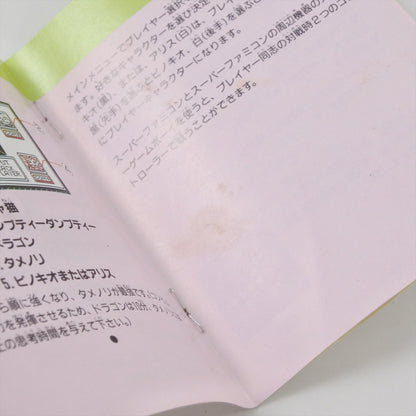 メインメニューでプレイヤー選択
ます。好きなキャラクターを選び決定
キオ(黒)、または、アリス(白)は、プレイヤ
黒(先手)を選ぶとピノキオ、白(後手)を選ぶ
にプレイヤーキャラクターになります。
スーパーファミコンとスーパーファミコンの周辺機器の
ーゲームボーイを使うと、プレイヤー同志の対戦時2つのコン
トローラーで競うことができます。
ャ猫
ンプティーダンプティー
ドラゴン
タメノリ
5. ピノキオまたはアリス
ら順に強くなり、タメノリが最強です。
りを発揮させるため、ドラゴンは10分、タメノリ
上の思考時間を与えて下さい。)